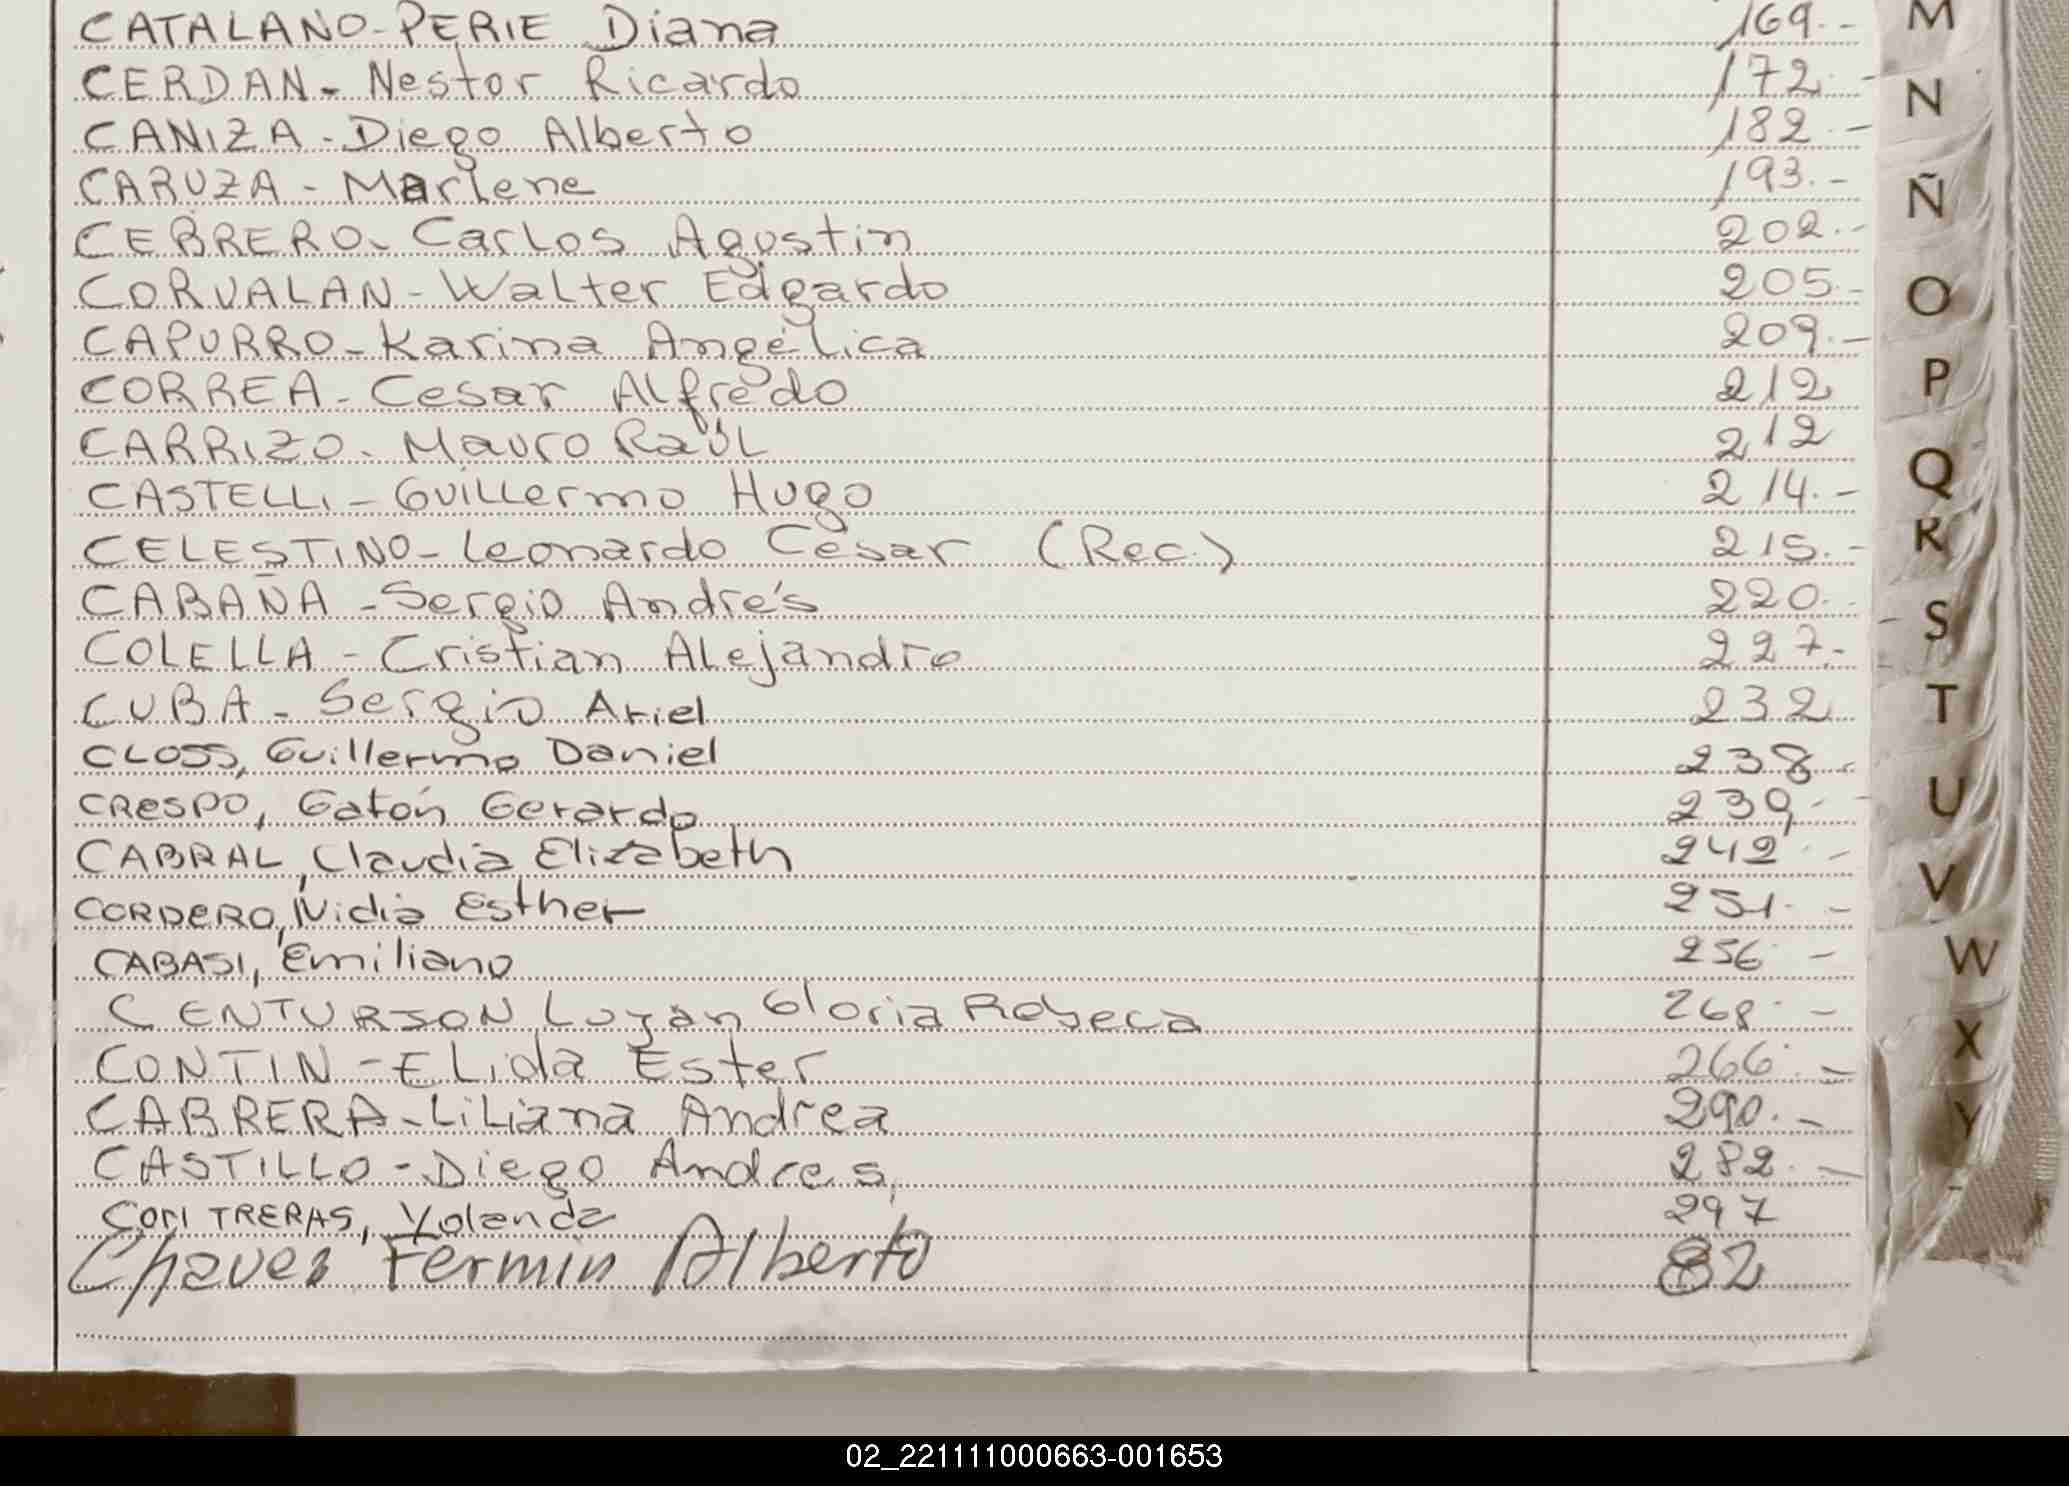 CATALANO-PERIE Diana 169.-
CERDAN- Nestor Ricardo 172.-
CANIZA-Diego Alberto 182.-
CARUZA- Marlene 193.-
CEBRERO- Carlos Agustin 202.-
CORVALAN-Walter Edgardo 205.-
CAPURRO-Karina Angélica 209.-
CORREA-Cesar Alfredo 212
CARRIZO- Mauro Raúl 212
CASTELLI-Guillermo Hugo 214.-
CELESTINO-Leonardo César (Rec.) 215.-
CABAÑA-Sergio Andrés 220.-
COLELLA-Cristian Alejandro 227.-
CUBA-Sergio Ariel 232
CLOSS, Guillermo Daniel 238.-
CRESPO, Gatón Gerardo 239.-
CABRAL, Claudia Elizabeth 242.-
CORDERO, Nidia Esther 251.-
CABASI, Emiliano 256.-
CENTURION Lujan Gloria Rebeca 268.-
CONTIN-Elida Ester 266.-
CABRERA-Liliana Andrea 290.-
CASTILLO-Diego Andres, 282.-
CONTRERAS, Yolanda 297
Chaves Fermin Alberto 82
M
N
Ñ
O
P
Q
R
S
T
U
V
W
X
Y
02_221111000663-001653